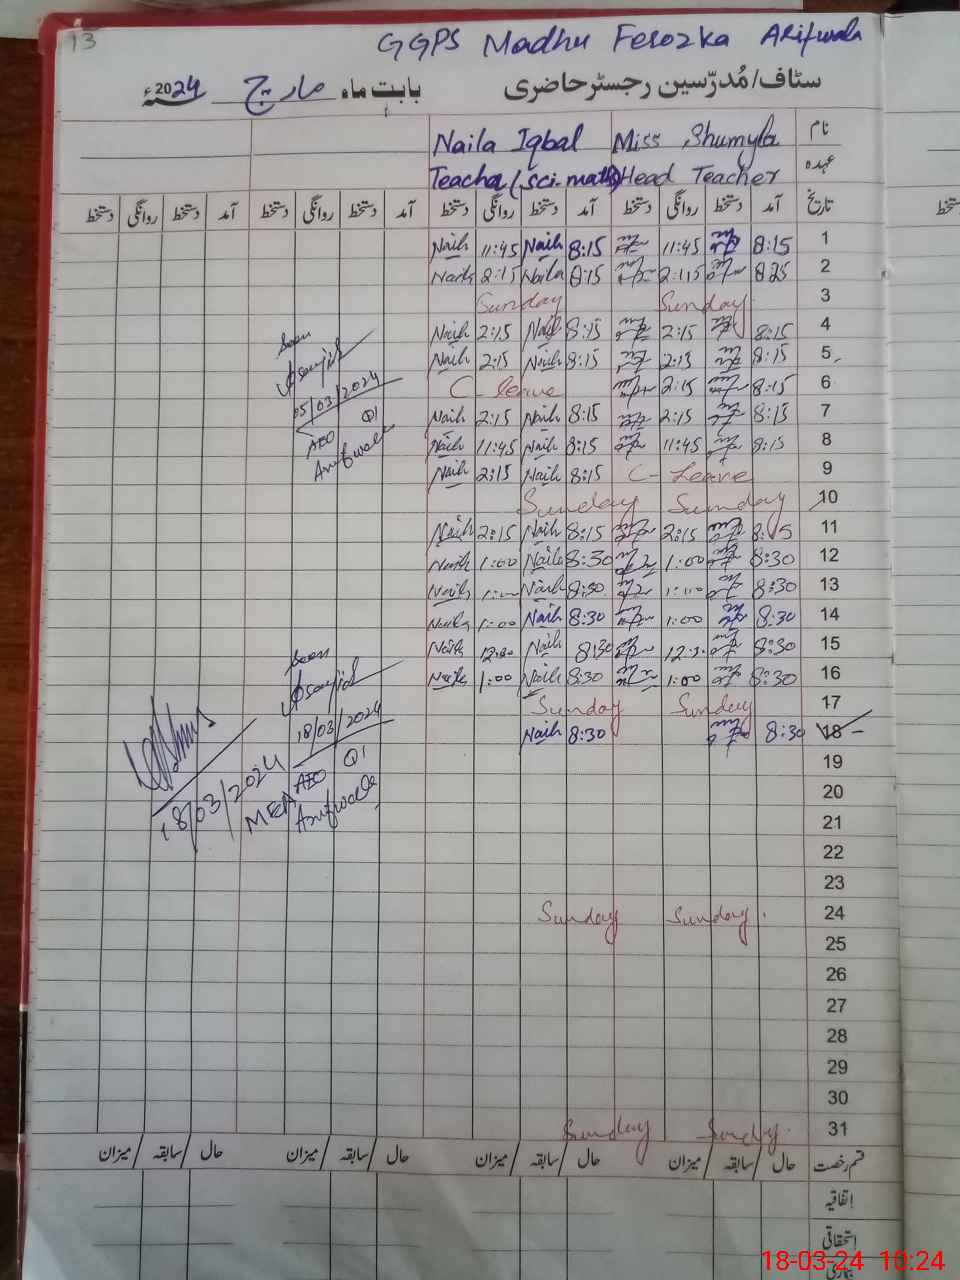 13
GGPS Madhu Ferozka Arifwala
سٹاف/مُدرّسین رجسٹر حاضری بابت ماہ مارچ 2024ء
نام Miss Shumyla Naila Iqbal
عہدہ Head Teacher Teacher (sci. math)
تاریخ آمد دستخط روانگی دستخط آمد دستخط روانگی دستخط آمد دستخط روانگی دستخط آمد دستخط روانگی دستخط
1 8:15 11:45 8:15 Naila 11:45 Naila
2 8:25 2:15 8:15 Naila 2:15 Naila
3 Sunday Sunday
4 8:15 2:15 8:15 Naila 2:15 Naila
5 8:15 2:15 8:15 Naila 2:15 Naila
6 8:15 2:15 C-leave
7 8:15 2:15 8:15 Naila 2:15 Naila
8 8:15 11:45 8:15 Naila 11:45 Naila
9 C-Leave 8:15 Naila 2:15 Naila
10 Sunday Sunday
11 8:15 2:15 8:15 Naila 2:15 Naila
12 8:30 1:00 8:30 Naila 1:00 Naila
13 8:30 1:00 8:30 Naila Naila
14 8:30 1:00 8:30 Naila 1:00 Naila
15 8:30 8:30 Naila 12:30 Naila
16 8:30 1:00 8:30 Naila 1:00 Naila
17 Sunday Sunday
18 8:30 8:30 Naila
19
20
21
22
23
24 Sunday Sunday
25
26
27
28
29
30
31 Sunday Sunday
Seen
05/03/2024
AEO
Arifwala
Seen
18/03/2024
AEO
Arifwala
18/03/2024
MEA
قسم رخصت حال سابقہ میزان حال سابقہ میزان حال سابقہ میزان حال سابقہ میزان
اتفاقیہ
استحقاقی
18-03-24 10:24